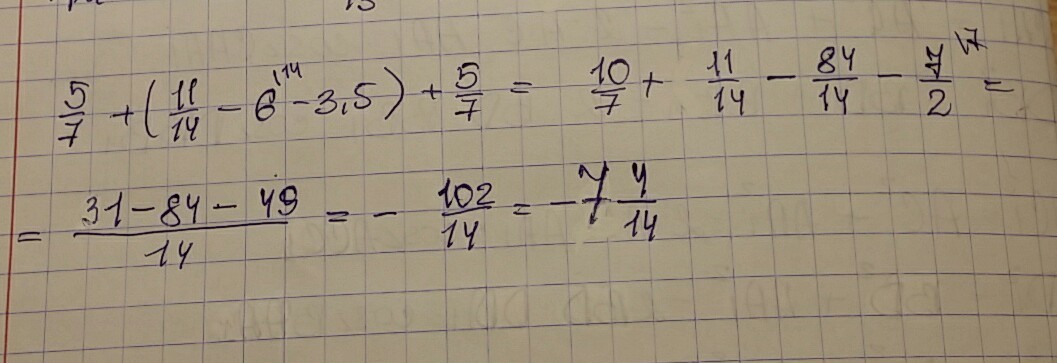 5/7 + (11/14 - 6^{\14} - 3,5) + 5/7 = 10/7 + 11/14 - 84/14 - 7/2^{\7} =
= (31 - 84 - 49)/14 = - 102/14 = - 7 4/14